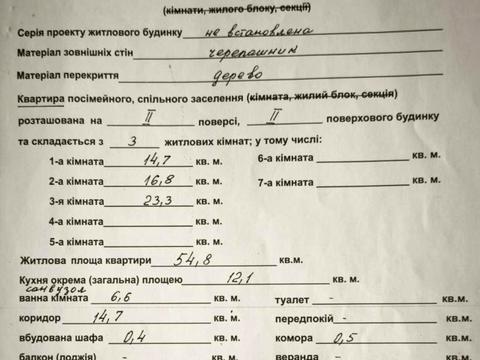 (кімнати, жилого блоку, секції)
Серія проекту житлового будинку не встановлена
Матеріал зовнішніх стін черепашник
Матеріал перекриття дерево
Квартира посімейного, спільного заселення (кімната, жилий блок, секція)
розташована на II поверсі, II поверхового будинку
та складається з 3 житлових кімнат; у тому числі:
1-а кімната 14,7 кв. м. 6-а кімната кв. м.
2-а кімната 16,8 кв. м. 7-а кімната кв. м.
3-я кімната 23,3 кв. м.
4-а кімната кв. м.
5-а кімната кв. м.
Житлова площа квартири 54,8 кв.м.
Кухня окрема (загальна) площею 12,1 кв. м.
санвузол
ванна кімната 6,6 кв. м. туалет - кв.м.
коридор 14,7 кв. м. передпокій - кв.м.
вбудована шафа 0,4 кв. м. комора 0,5 кв.м.
балкон (лоджія) - кв. м. веранда - кв.м.